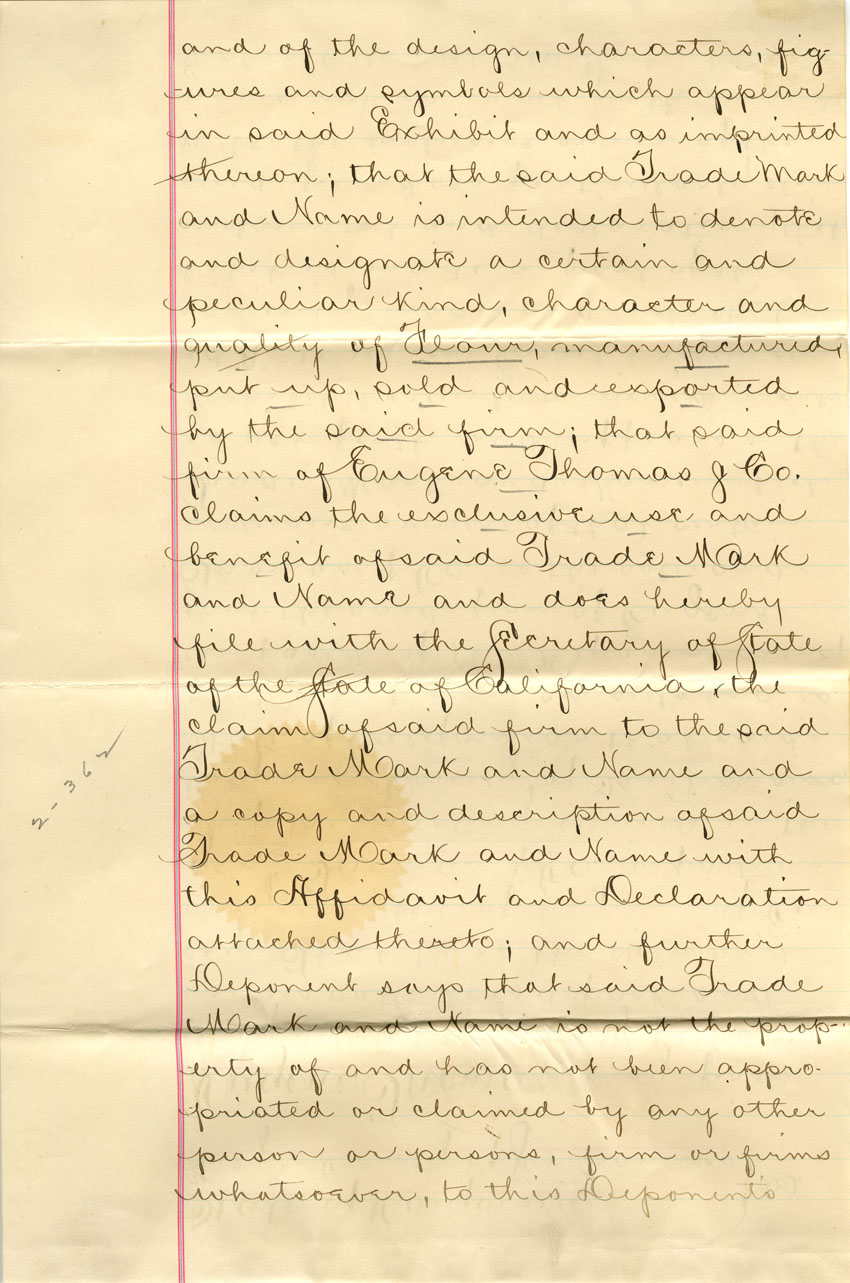 and of the design, characters, fig-
ures and symbols which appear
in said Exhibit and as imprinted
thereon; that the said Trade Mark
and Name is intended to denote
and designate a certain and
peculiar kind, character and
quality of Flour, manufactured,
put up, sold and exported
by the said firm; that said
firm of Eugene Thomas & Co.
claims the exclusive use and
benefit of said Trade Mark
and Name and does hereby
file with the Secretary of State
of the State of California, the
claim of said firm to the said
Trade Mark and Name and
a copy and description of said
Trade Mark and Name with
this Affidavit and Declaration
attached thereto; and further
Deponent says that said Trade
Mark and Name is not the prop-
erty of and has not been appro-
priated or claimed by any other
person or persons, firm or firms
whatsoever, to this Deponent's
2-362